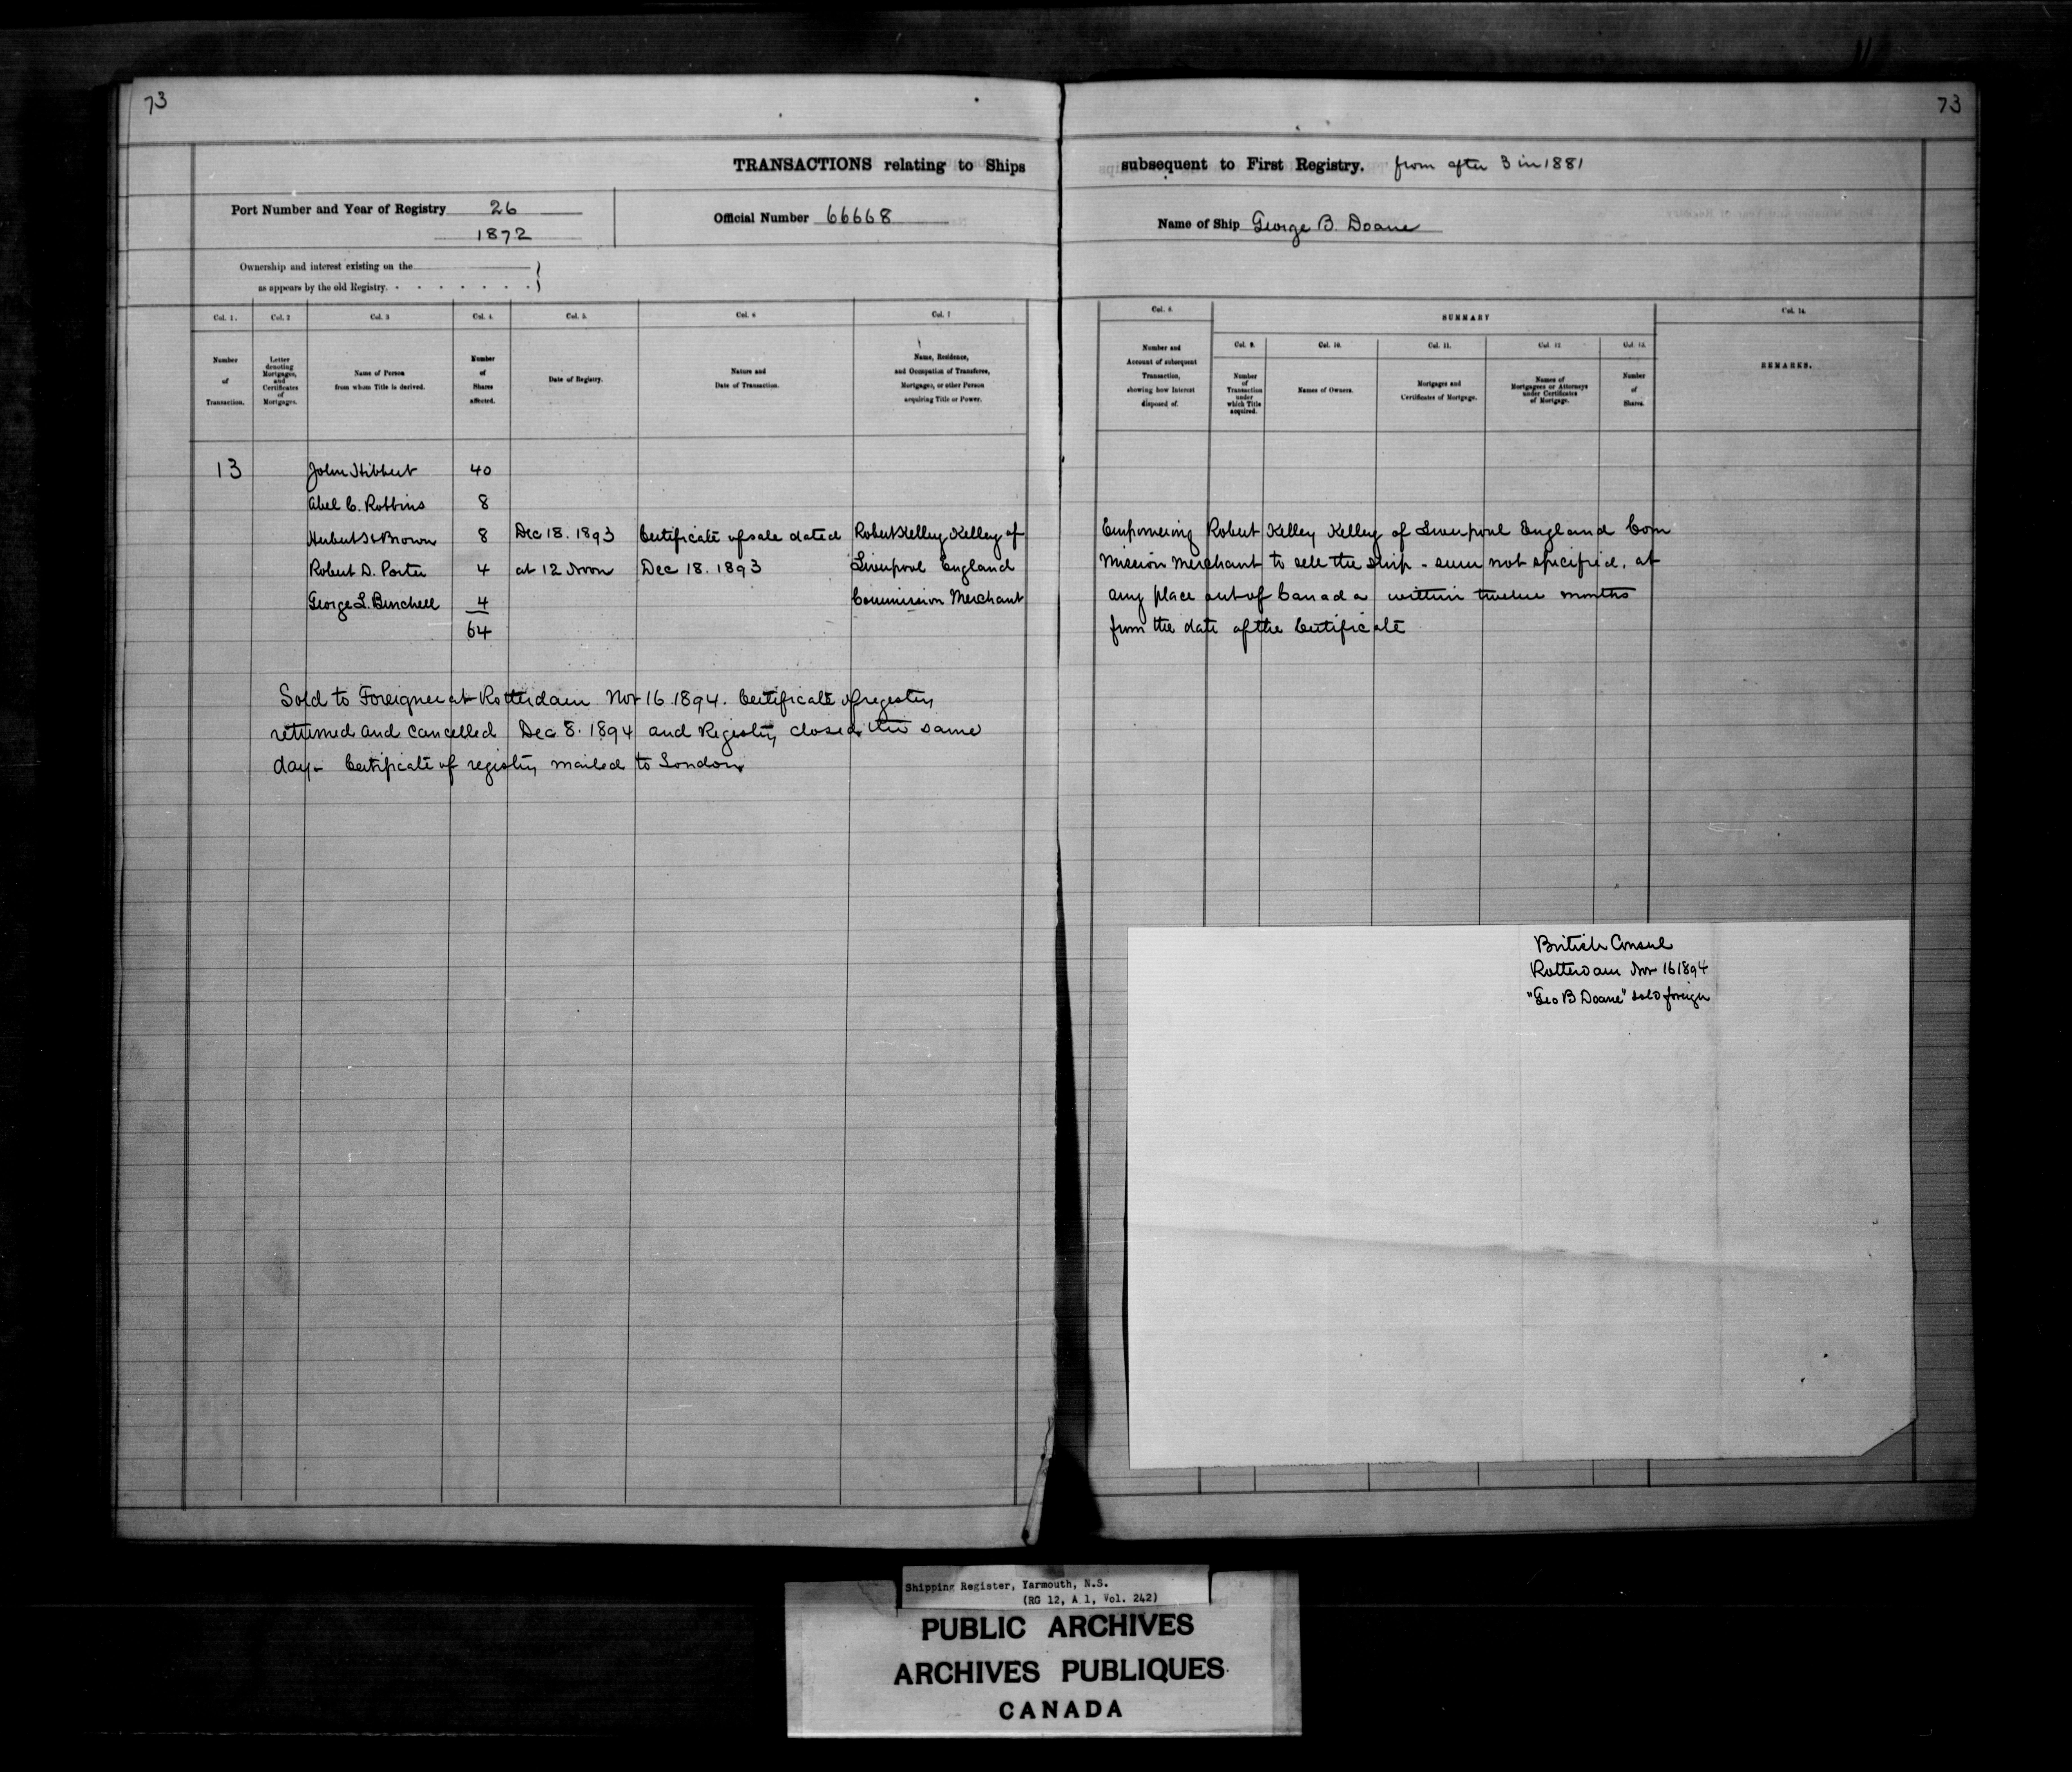 73
73
TRANSACTIONS relating to Ships
subsequent to First Registry. from after 3 in 1881
Port Number and Year of Registry 26
1872
Official Number 66668
Name of Ship George B. Doane
Ownership and interest existing on the
as appears by the old Registry.
Col. 1.
Col. 2
Col. 3
Col. 4.
Col. 5.
Col. 6
Col. 7
Number
of
Transaction.
Letter
denoting
Mortgages,
and
Certificates
of
Mortgages.
Name of Person
from whom Title is derived.
Number
of
Shares
affected.
Date of Registry.
Nature and
Date of Transaction.
Name, Residence,
and Occupation of Transferee,
Mortgagee, or other Person
acquiring Title or Power.
Col. 8.
SUMMARY
Col. 14.
Col. 9.
Col. 10.
Col. 11.
Col. 12
Col. 13.
Number and
Account of subsequent
Transaction,
showing how Interest
disposed of.
Number
of
Transaction
under
which Title
acquired.
Names of Owners.
Mortgages and
Certificates of Mortgage.
Names of
Mortgagees or Attorneys
under Certificates
of Mortgage.
Number
of
Shares.
REMARKS.
13 John Hibbert 40
Abel C. Robbins 8
Herbert H Brown 8 Dec 18. 1893 Certificate of sale dated Robert Kelley Kelley of
Robert D. Porter 4 at 12 Noon Dec 18. 1893 Liverpool England
George L. Bunchell 4 Commission Merchant
64
Empowering Robert Kelley Kelley of Liverpool England Com
mission Merchant to sell the ship - sum not specified. at
any place out of Canada within twelve months
from the date of the Certificate
Sold to Foreigner at Rotterdam Nov 16 1894. Certificate of registry
returned and cancelled Dec 8. 1894 and Registry closed the same
day - Certificate of registry mailed to London
British Consul
Rotterdam Nov 16 1894
"Geo B Doane" sold foreign
Shipping Register, Yarmouth, N.S.
(RG 12, A 1, Vol. 242)
PUBLIC ARCHIVES
ARCHIVES PUBLIQUES
CANADA